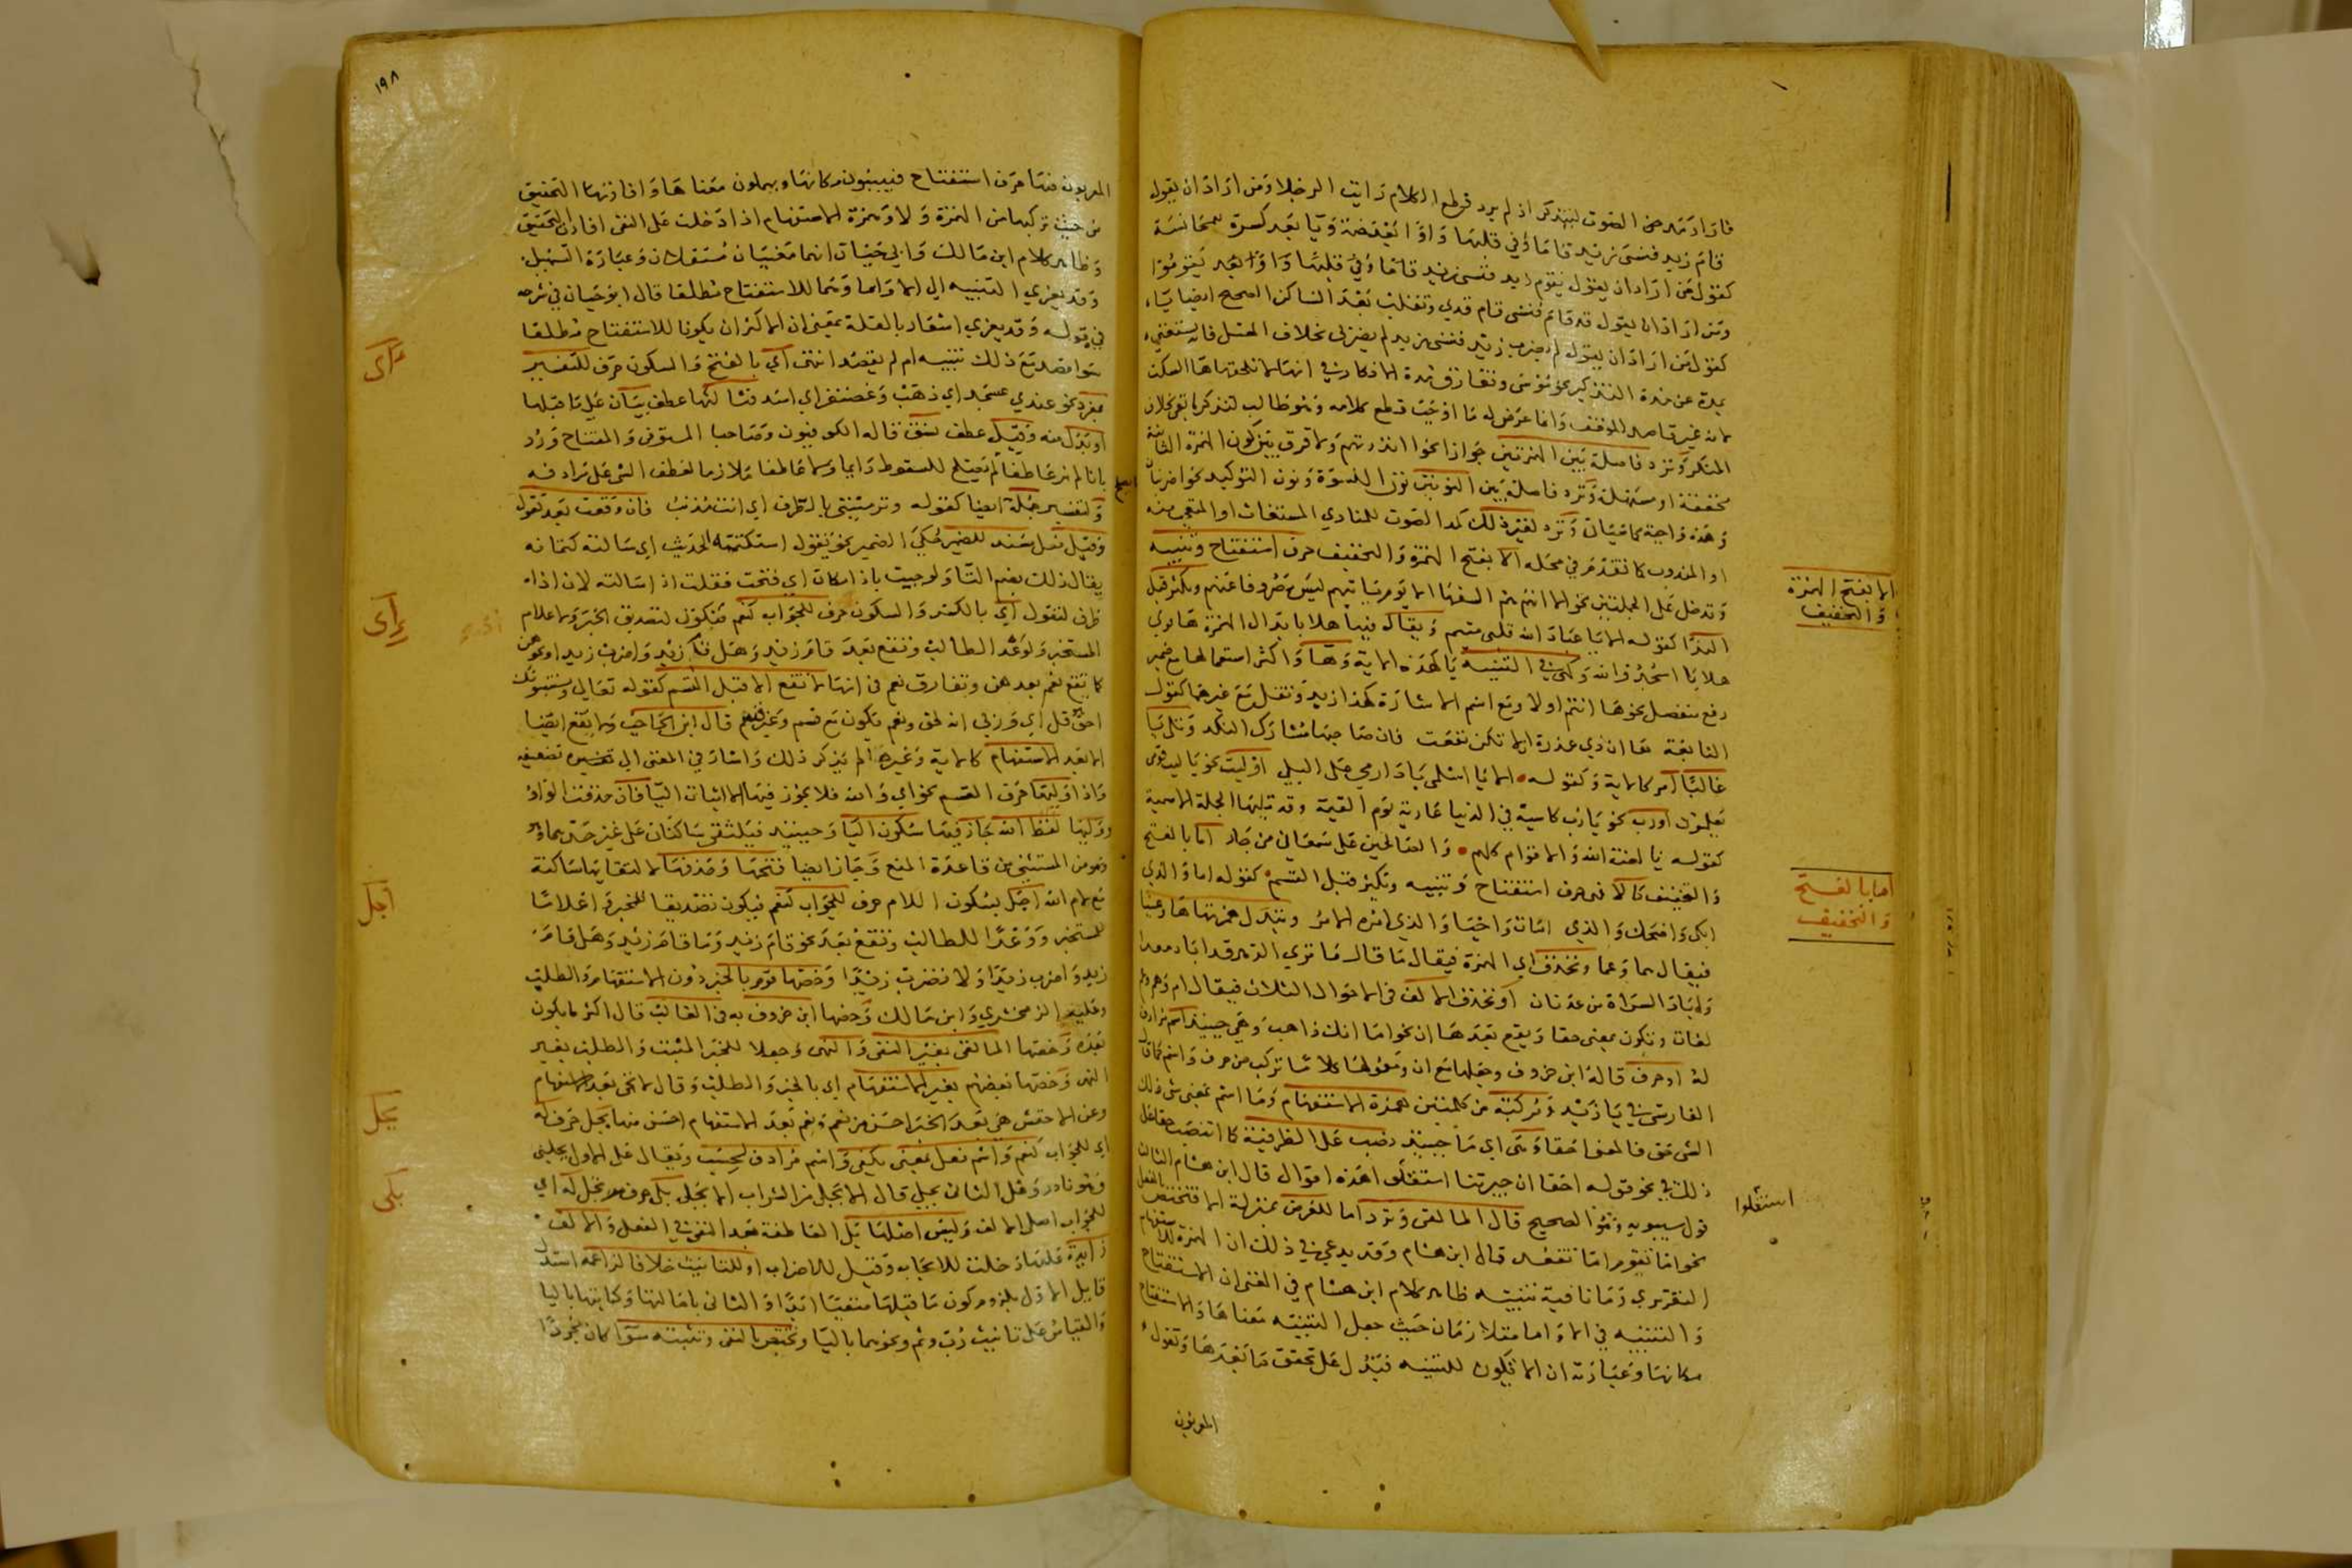 فاراد مد من الصوت ليتذكر اذ لم يرد قطع الكلام رايت الرجلا ومن اراد ان يقول
قام زيد فنسى زيد قاما وفي قلبها واوا بعد ضمة ويا بعد كسرة لمجانسة
كقول من اراد ان يقول يقوم زيد فنسى زيد قاما وفي قلبها واوا بعد يقومو
ومن اراد ان يقول قد قام فنسى قام قدي وتقلب بعد الساكن الصحيح ايضا ياء
كقول من اراد ان يقول لم يضرب زيد فنسى زيد لم يضربي بخلاف المعتل فانه يستغنى
بمده عن مدة التذكير نحو موسى وتفارق مدة الانكار في انها لا تلحقها هاء السكت
لانه غير قاصد للوقف وانما عرض له ما اوجب قطع كلامه وهو طالب لتذكر ما بقى بخلاف
المنكر وترد فاصلة بين الهمزتين جوازا نحو اانذرتهم ولا فرق بين كون الهمزة الثانية
مخففة او مسهلة وترد فاصلة بين النونين نون النسوة ونون التوكيد نحو اضربنان
وهذه واجبة كما مر وترد لغير ذلك كمد الصوت للمنادي المستغاث او المتعجب منه
او المندوب كما تقدم في محله الا بفتح الهمزة والتخفيف حرف استفتاح وتنبيه
وتدخل على الجملتين نحو الا انهم هم السفها الا يوم ياتيهم ليس مصروفا عنهم ويكثر قبل
الندا كقوله الا يا عباد الله قلبى متيم ويقال فيها هلا بابدال الهمزة ها
رفع منفصل نحو ها انتم اولا ومع اسم الاشارة كهذا زيد وتقل مع غيرهما كقول
النابغة ها ان ذي عذرة الا تكن نفعت فان صاحبها مشارك النكد وتلى يا
غالبا امر كالاية وكقوله الا يا اسلمى يا دارمي على البلى او ليت نحو يا ليت قومى
يعلمون او رب نحو يا رب كاسية في الدنيا عارية يوم القيمة وقد تليها الجملة الاسمية
كقوله يا لعنة الله والاقوام كلهم والصالحين على سمعان من جار اما بالفتح
والتخفيف كالا فى حرف استفتاح وتنبيه وتكثر قبل القسم كقوله اما والذي
ابكى واضحك والذي امات واحيا والذي امره الامر وتبدل همزتها ها وعينا
فيقال هما وعما وتحذف اي الهمزة فيقال ما قال ما تري الدهر قد اباد معدا
واباد السراة من عدنان او تحذف الالف فى الاحوال الثلاث فيقال ام وهم وعم
لغات وتكون بمعنى حقا ويقع بعدها ان نحو اما انك ذاهب وهي حينيذ اسم مرادف
له او حرف قاله ابن خروف وجعلها مع ان ومعمولها كلاما تركب من حرف واسم كما قال
الفارسى في يا زيد ومركبة من كلمتين همزة الاستفهام وما اسم بمعنى شى ذلك
الشى حق فالمعنى احقا
ذلك في نحو قوله احقا ان جيرتنا استقلوا هذه اقوال قال ابن هشام الثالث
قول سيبويه وهو الصحيح قال المالقى وترد اما للعرض بمنزلة الا فتختص بالفعل
نحو اما تقوم اما تقعد قال ابن هشام وقد يدعي في ذلك ان الهمزة للاستفهام
التقريري وما نافية تنبيه ظاهر كلام ابن هشام في المغنى ان الاستفتاح
والتنبيه في الا واما متلازمان حيث جعل التنبيه معناها والاستفتاح
مكانها وعبارته ان الا تكون للتنبيه فتدل على تحقق ما بعدها وتقول
المعربون
الا بفتح الهمزة
والتخفيف
اما بالفتح
والتخفيف
استقلوا
١٩٨
المعربون فيها حرف استفتاح فيبينون مكانها ويهملون معناها وافادتها التحقيق
من حيث تركبها من الهمزة ولا وهمزة الاستفهام اذا دخلت على النفى افادت التحقيق
وظاهر كلام ابن مالك وابي حيان انهما معنيان مستقلان وعبارة التسهيل
وقد يعزي التنبيه الى الا واما وهما للاستفتاح مطلقا قال ابو حيان في شرحه
في قوله وقد يعزي اشعار بالقلة بمعنى ان الاكثر ان يكونا للاستفتاح مطلقا
سوا قصد مع ذلك تنبيه ام لم يقصد انتهى اي بالفتح والسكون حرف للتفسير
بمفرد نحو عندي عسجد اي ذهب وغضنفر اي اسد فتاليها عطف بيان على ما قبلها
او بدل منه وقيل عطف نسق قاله الكوفيون وصاحبا المستوفى والمفتاح ورد
بانا لم نر عاطفا يصلح للسقوط دايما ولا عاطفا ملازما لعطف الشى على مرادفه
ولتفسير جملة ايضا كقوله وترمينني بالطرف اي انت مذنب فان وقعت بعد تقول
وقبل فعل مسند للضمير حكي الضمير نحو تقول استكتمته الحديث اي سالته كتمانه
يقال ذلك بضم التا ولو جيت باذا مكان اي فتحت فقلت اذا سالته لان اذا
ظرف لتقول اي بالكسر والسكون حرف للجواب كنعم فتكون لتصديق الخبر ولاعلام
المستخبر ولوعد الطالب وتقع بعد قام زيد وهل قام زيد واضرب زيدا ونحوهن
كما تقع نعم بعدهن وتفارق نعم فى انها لا تقع الا قبل القسم كقوله تعالى ويستنبونك
احق هو قل اي وربى انه لحق ونعم تكون مع قسم وغير قسم قال ابن الحاجب ولا تقع ايضا
الا بعد الاستفهام كالاية وغيره لم يذكر ذلك واشار في المغنى الى تضعيفه
واذا وليها حرف القسم نحو اي والله فلا يجوز فيها الا اثبات اليا فان حذفت الواو
ووليها لفظ الله جاز فيها سكون اليا وحينيذ فيلتقى ساكنان على غير حدهما
وهو من المستثنى من قاعدة المنع وجاز ايضا فتحها وحذفها لالتقايها ساكنة
مع لام الله اجل بسكون اللام حرف للجواب كنعم فيكون تصديقا للمخبر واعلاما
للمستخبر ووعدا للطالب وتقع بعد نحو قام زيد وما قام زيد وهل قام
زيد واضرب زيدا ولا تضرب زيدا وخصها قوم بالخبر دون الاستفهام والطلب
وعليه الزمخشري وابن مالك وخصها ابن خروف به فى الغالب قال اكثر ما يكون
بعده وخصها المالقى بغير النفى والنهى وجعلا للخبر المثبت والطلب بغير
النهى وخصها بعضهم بغير الاستفهام اي بالخبر والطلب وقال لا تجى بعد الاستفهام
وعن الاخفش هي بعد الخبر احسن من نعم ونعم بعد الاستفهام احسن منها بجل حرف له
اي للجواب كنعم واسم فعل بمعنى يكفى واسم مرادف لحسب ويقال على الاول بجلنى
وهو نادر وعلى الثانى بجلي قال الا بجلي من الشراب الا بجلى بلى حرف مرتجل له اي
للجواب اصلى الالف وليس اصلها بل العاطفة
زايدة عليها دخلت للايجاب وقيل للاضراب او للتانيث خلافا لزاعمه استدل
قايل الاول بلزوم كون ما قبلها منفيا ابدا والثانى بامالتها وكتابتها باليا
والقياس على تانيث رب وثم ونحوهما باليا وتختص بالنفى وتثبته سوا كان مجردا
اي
اي
اجل
بجل
بلى